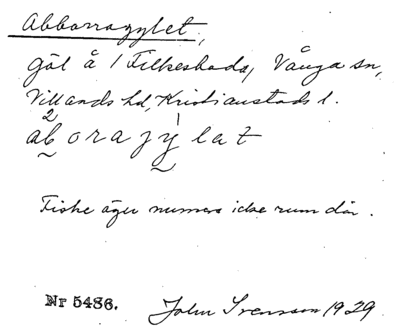 Abborragylet,
göl å 1 Filkesboda, Vånga sn,
Villands hd, Kristianstads l.
2
aborajylat
Fiske äger numera icke rum där.
Nr 5486. John Svensson 1929